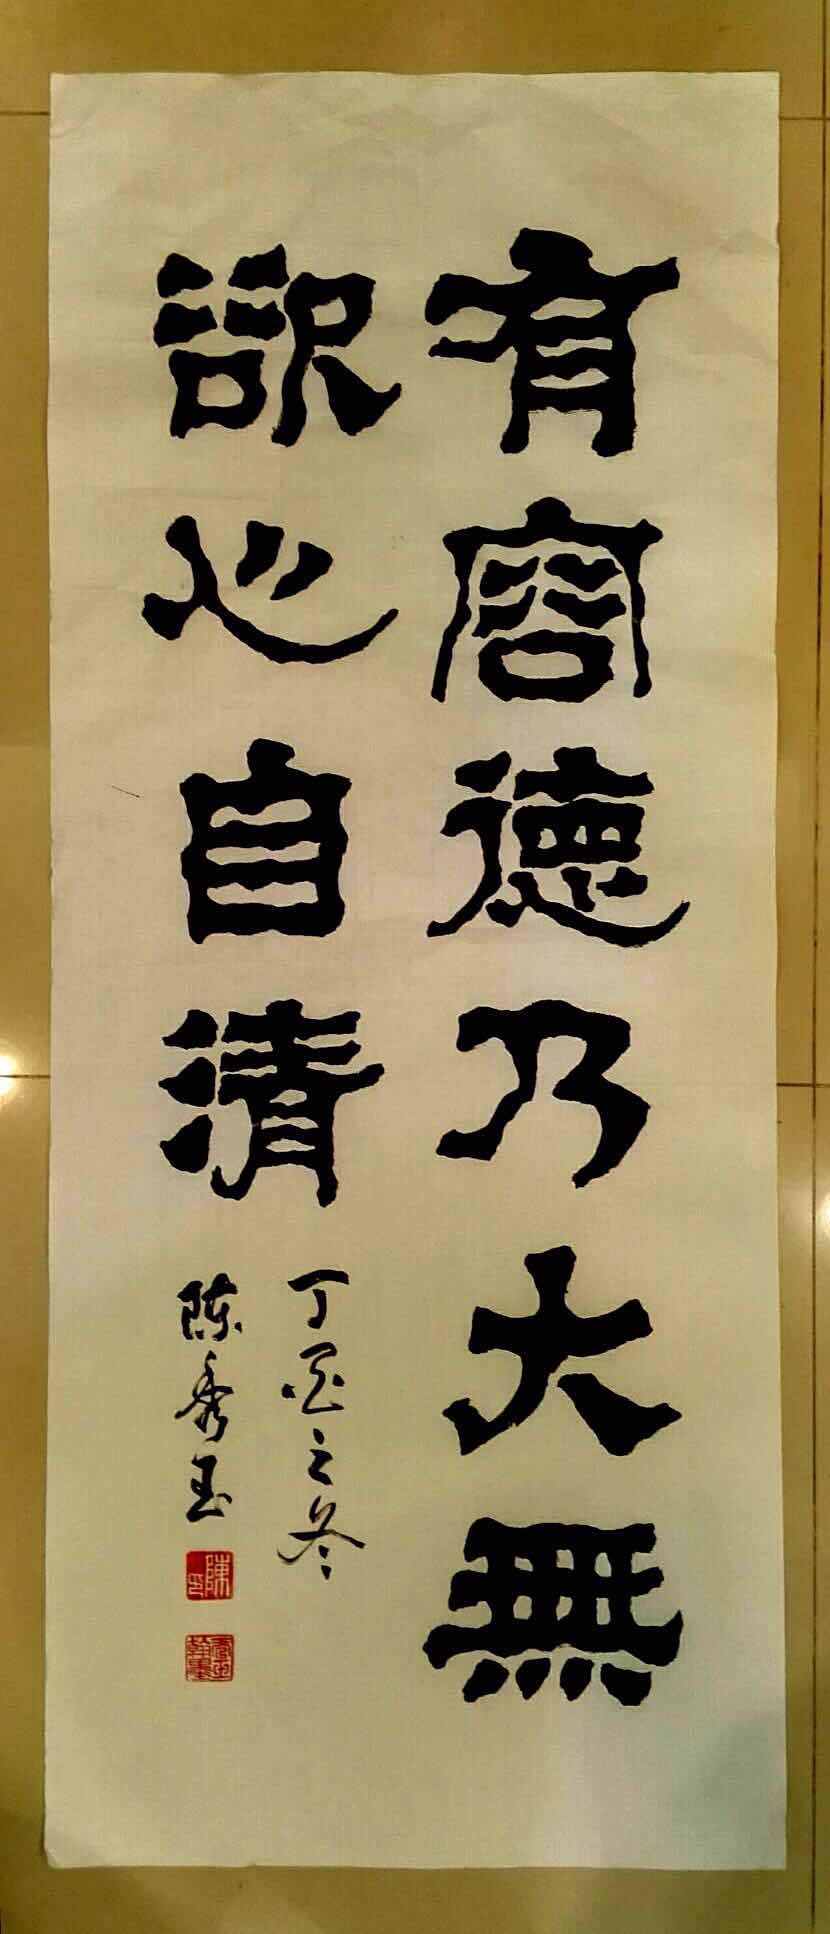 有容德乃大無
欲心自清
丁酉之冬
陈秀玉